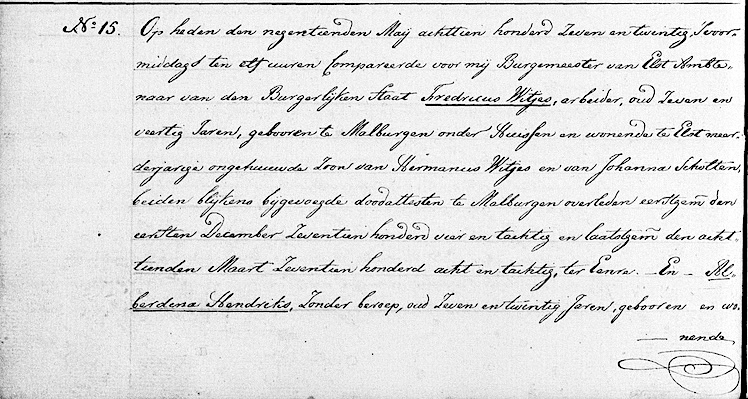 No. 15. Op heden den negentienden Maij achttien honderd Zeven en twintig 's voor-
middags ten elf uuren Compareerde voor mij Burgemeester van Elst Ambte-
naar van den Burgerlijken Staat Fredricus Witjes, arbeider, oud Zeven en
veertig Jaren, gebooren te Malburgen onder Huissen en wonende te Elst meer-
derjarige ongehuuwde Zoon van Hermanus Witjes en van Johanna Scholten,
beiden blijkens bijgevoegde doodattesten te Malburgen overleden eerstgem. den
eersten December Zeventien honderd vier en tachtig en laatstgem. den acht-
tienden Maart Zeventien honderd acht en tachtig, ter Eenre. En Al-
berdina Hendriks, Zonder beroep, oud Zeven en twintig Jaren, gebooren en wo-
nende